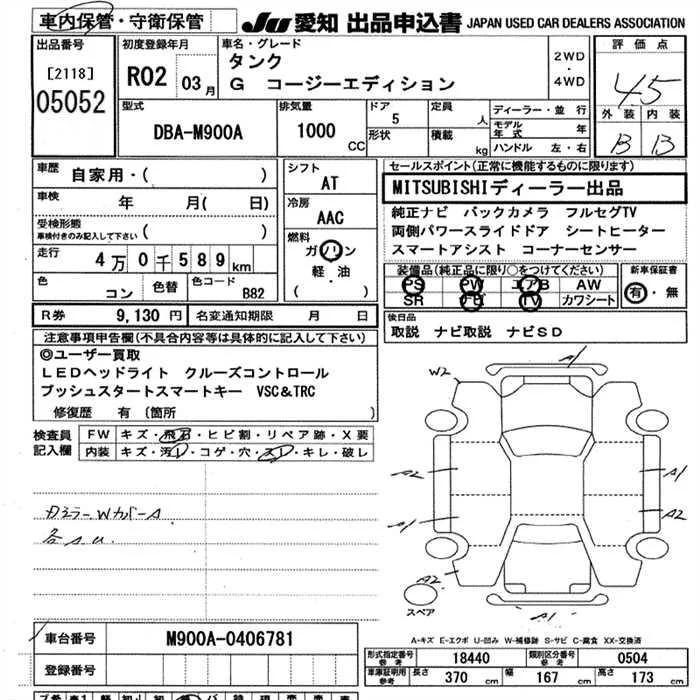 車内保管・守衛保管 JU 愛知 出品申込書 JAPAN USED CAR DEALERS ASSOCIATION
出品番号 初度登録年月 車名・グレード 評価点
[2118] R02 03月 タンク 2WD・4WD 4.5
05052 G コージーエディション
外装 内装
B B
型式 排気量 ドア 定員 ディーラー・並行
DBA-M900A 1000 CC 5 人 モデル年式 年
形状 積載 kg ハンドル 左・右
車歴 自家用・( ) シフト AT セールスポイント(正常に機能するものに限ります)
MITSUBISHIディーラー出品
車検 年 月( 日) 冷房 AAC 純正ナビ バックカメラ フルセグTV
受検形態 車検付きのみ記入して下さい ( ) 燃料 ガソリン 両側パワースライドドア シートヒーター
走行 4万0千589km 軽・油 スマートアシスト コーナーセンサー
( )
装備品(純正品に限り○をつけてください) 新車保証書
色 コン 色替 色コード B82 PS PW エアB AW 有・無
SR ナビ TV カワシート
R券 9,130円 名変通知期限 月 日 後日品
取説 ナビ取説 ナビSD
注意事項申告欄(不具合内容等は具体的に記入して下さい)
◎ユーザー買取
LEDヘッドライト クルーズコントロール
プッシュスタートスマートキー VSC&TRC
修復歴 有 (箇所
検査員記入欄 FW キズ・飛石・ヒビ割・リペア跡・X要
内装 キズ・汚レ・コゲ・穴・スレ・キレ・破レ
A1
W2
A2 A1
A1 A2
A2
A1
スペア
A-キズ E-エクボ U-凹み W-補修跡 S-サビ C-腐食 XX-交換済
車台番号 M900A-0406781
登録番号
形式指定番号 参考 18440 類別区分番号 参考 0504
車庫証明用 参考 長さ 370 cm 幅 167 cm 高さ 173 cm